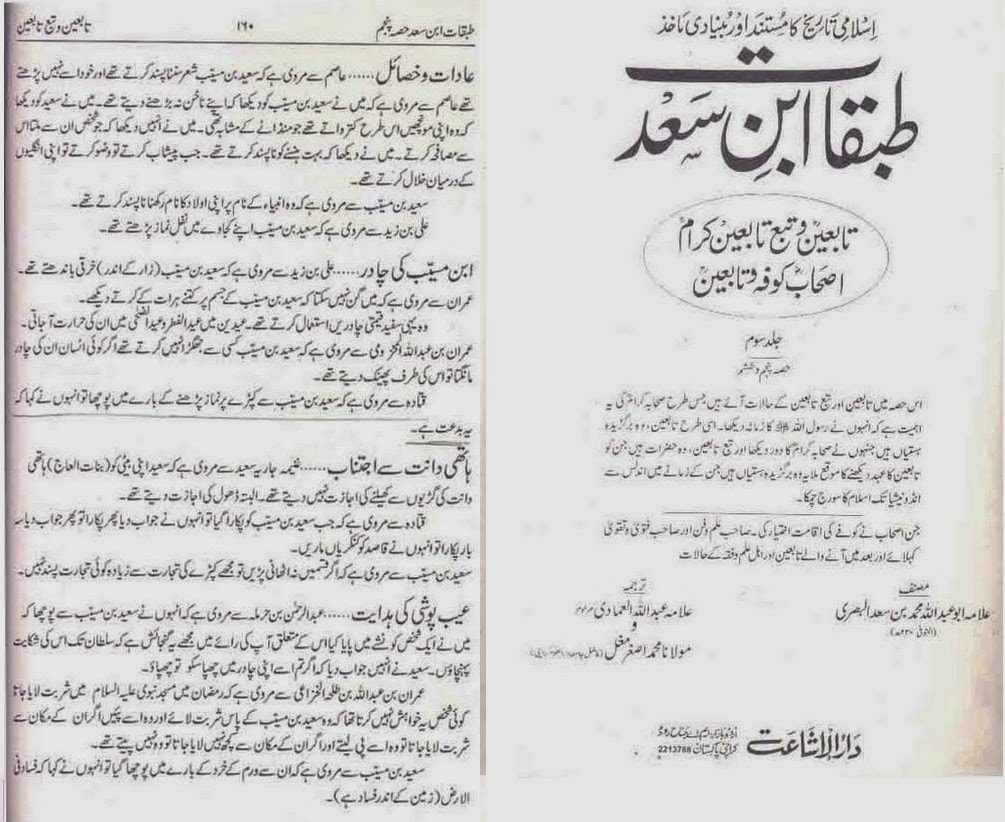 اسلامی تاریخ کا مستند اور بنیادی ماخذ
طبقات ابن سعد
تابعینؒ و تبع تابعین کرامؒ
اصحابِ کوفہ و تابعینؒ
جلد سوم
حصہ پنجم و ششم
اس حصہ میں تابعین اور تبع تابعین کے حالات آئے ہیں جس طرح صحابہ کرامؓ کی یہ
اہمیت ہے کہ انہوں نے رسول اللہ ﷺ کا زمانہ دیکھا۔ اسی طرح تابعین، وہ برگزیدہ
ہستیاں ہیں جنہوں نے صحابہ کرامؓ کا دور دیکھا اور تبع تابعین، وہ حضرات ہیں جن کو
تابعین کا عہد دیکھنے کا موقع ملا یہ وہ برگزیدہ ہستیاں ہیں جن کے زمانے میں اندلس سے
انڈونیشیا تک اسلام کا سورج چمکا۔
جن اصحاب نے کوفے کی اقامت اختیار کی۔ صاحب علم و فن اور صاحب فتویٰ و تقویٰ
کہلائے اور بعد میں آنے والے تابعین اور اہل علم و فقہ کے حالات
مصنف
علامہ ابو عبداللہ محمد بن سعد البصری
(المتوفی ۲۳۰ھ)
ترجمہ
علامہ عبداللہ العمادی مرحوم
و
مولانا محمد اصغر مغل
دار الاشاعت
اردو بازار، ایم اے جناح روڈ
کراچی پاکستان 2213768
طبقات ابن سعد حصہ پنجم ۱۶۰ تابعین و تبع تابعین
عادات و خصائل...... عاصم سے مروی ہے کہ سعید بن مسیّب شعر سننا پسند کرتے تھے اور خود اسے نہیں پڑھتے
تھے عاصم سے مروی ہے کہ میں نے سعید بن مسیّب کو دیکھا کہ اپنے ناخن نہ بڑھنے دیتے تھے۔ میں نے سعید کو دیکھا
کہ وہ اپنی مونچھیں اس طرح کترواتے تھے جو منڈانے کے مشابہ تھی۔ میں نے انہیں دیکھا کہ جو شخص ان سے ملتا اس
سے مصافحہ کرتے۔ میں نے دیکھا کہ بہت ہنسنے کو ناپسند کرتے تھے۔ جب پیشاب کرتے تو وضو کرتے تو اپنی انگلیوں
کے درمیان خلال کرتے تھے۔
سعید بن مسیّب سے مروی ہے کہ وہ انبیاء کے نام پر اپنی اولاد کا نام رکھنا ناپسند کرتے تھے۔
علی بن زید سے مروی ہے کہ سعید بن مسیّب اپنے کجاوے میں نفل نماز پڑھتے تھے۔
ابن مسیّب کی چادر...... علی بن زید سے مروی ہے کہ سعید بن مسیّب (زار کے اندر) خرقی باندھتے تھے۔
عمران سے مروی ہے کہ میں گن نہیں سکتا کہ سعید بن مسیّب کے جسم پر کتنے ہرات کے کرتے دیکھے۔
وہ یہی سفید قیمتی چادریں استعمال کرتے تھے۔ عیدین میں عید الفطر و عید الضحٰی میں ان کی حرارت آجاتی۔
عمران بن عبداللہ المخزومی سے مروی ہے کہ سعید بن مسیّب کسی سے جھگڑا نہیں کرتے تھے اگر کوئی انسان ان کی چادر
مانگتا تو اس کی طرف پھینک دیتے تھے۔
قتادہ سے مروی ہے کہ سعید بن مسیّب سے کپڑے پر نماز پڑھنے کے بارے میں پوچھا تو انہوں نے کہا کہ
یہ بدعت ہے۔
ہاتھی دانت سے اجتناب...... غنیمہ جاریہ سعید سے مروی ہے کہ سعید اپنی بیٹی کو (بنات العاج) ہاتھی
دانت کی گڑیوں سے کھیلنے کی اجازت نہیں دیتے تھے۔ البتہ ڈھول کی اجازت دیتے تھے۔
قتادہ سے مروی ہے کہ جب سعید بن مسیّب کو پکارا گیا تو انہوں نے جواب دیا پھر پکارا تو پھر جواب دیا سہ
بار پکارا تو انہوں نے قاصد کو کنکریاں ماریں۔
سعید بن مسیّب سے مروی ہے کہ اگر قسمیں نہ اٹھانی پڑیں تو مجھے کپڑے کی تجارت سے زیادہ کوئی تجارت پسند نہیں۔
عیب پوشی کی ہدایت...... عبدالرحمٰن بن حرملہ سے مروی ہے کہ انہوں نے سعید بن مسیّب سے پوچھا کہ
میں نے ایک شخص کو نشے میں پایا کیا اس کے متعلق آپ کی رائے میں مجھے یہ گنجائش ہے کہ سلطان تک اس کی شکایت
پہنچاؤں۔ سعید نے انہیں جواب دیا کہ اگر تم اسے اپنی چادر میں چھپا سکو تو چھپاؤ۔
عمران بن عبداللہ بن طلحہ الخزاعی سے مروی ہے کہ رمضان میں مسجد نبوی علیہ السلام میں شربت لایا جاتا
کوئی شخص یہ خواہش نہیں کرتا تھا کہ وہ سعید بن مسیّب کے پاس شربت لائے اور وہ اسے پئیں اگر ان کے مکان سے
شربت لایا جاتا تو وہ اسے پی لیتے اور اگر ان کے مکان سے کچھ نہیں لایا جاتا تو وہ نہیں پیتے تھے۔
سعید بن مسیّب سے مروی ہے کہ ان سے درم کے خرد کے بارے میں پوچھا گیا تو انہوں نے کہا کہ فساد فی
الارض (زمین کے اندر فساد ہے)۔